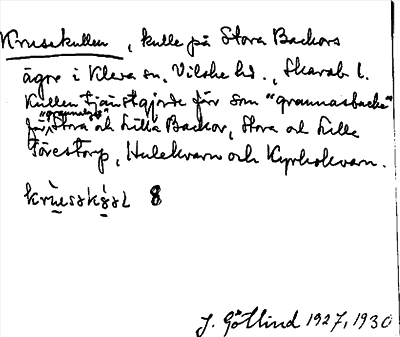 Krusekullen, kulle på Stora Backors
ägor i Kleva sn, Vilske hd., Skarab. l.
Kullen tjänstgjorde förr som "grannasbacke"
för "grannarna" Stora och Lilla Backor, Stora och Lilla
Törestorp, Hulekvarn och Kyrkekvarn.
8
J. Götlind 1927, 1930